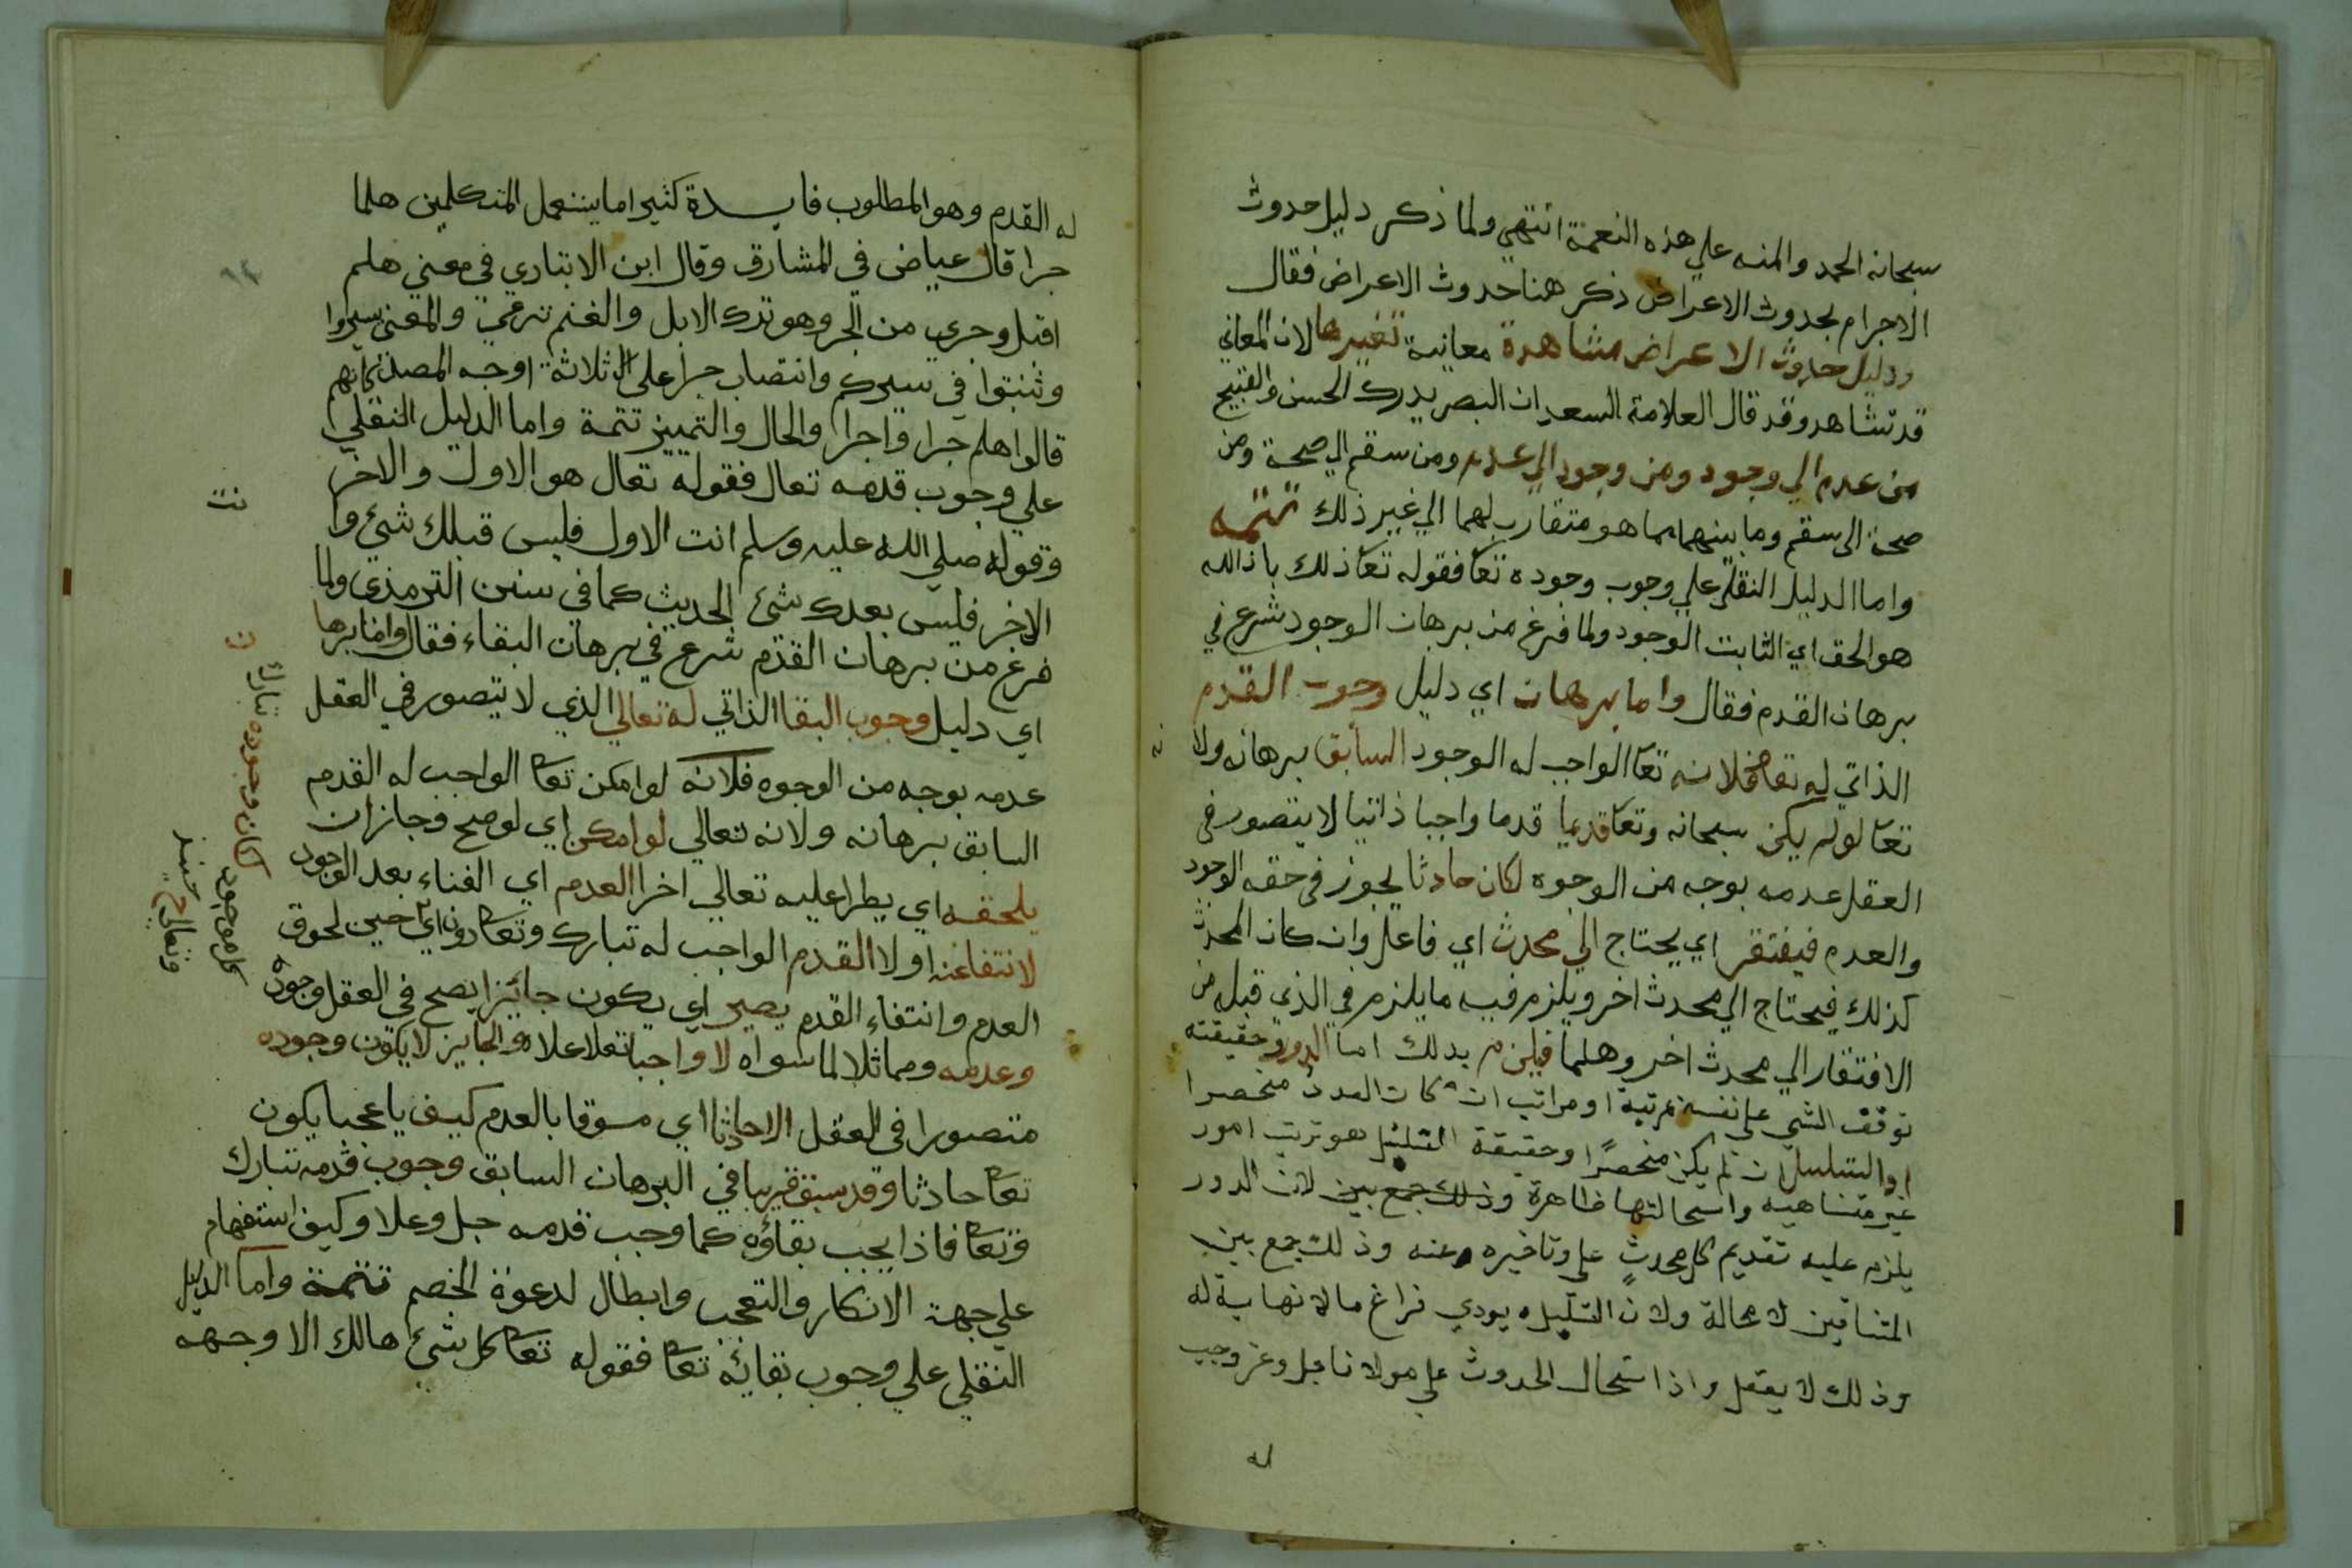 سبحانه الحمد والمنه علي هذه النعمة انتهي ولما ذكر دليل حدوث
الاجرام بحدوث الاعراض ذكر هنا حدوث الاعراض فقال
ودليل حدوث الاعراض مشاهدة معانية تغيرها لان المعاني
قد تشاهد وقد قال العلامة السعد ان البصر يدرك الحسن والقبيح
من عدم الي وجود ومن وجود الي عدم ومن سقم الي صحة ومن
صحة الى سقم وما بينهما مما هو متقارب لهما الي غير ذلك تتمه
واما الدليل النقلي علي وجوب وجوده تعا فقوله تعا ذلك بان الله
هو الحق اي الثابت الوجود ولما فرغ من برهان الوجود شرع في
برهان القدم فقال واما برهان اي دليل وجوب القدم
الذاتي له تعا فلانه تعا الواجب له الوجود السابق برهانه ولا
تعا لو لم يكن سبحانه وتعا قديما قدما واجبا ذاتيا لا يتصور في
العقل عدمه بوجه من الوجوه لكان حادثا يجوز في حقه الوجود
والعدم فيفتقر اي يحتاج الي محدث اي فاعل وان كان المحدث
كذلك فيحتاج الي محدث اخر ويلزم فيه ما يلزم في الذي قبل من
الافتقار الي محدث اخر وهلما فيلزم بدلك اما الدور وحقيقته
توقف الشي علي نفسه بمرتبة او مراتب ان كان العدد منحصرا
او التسلسل ان لم يكن منحصرا وحقيقة التسلسل هو ترتب امور
غير متناهيه واستحالتها ظاهرة وذلك جمع بين لان الدور
يلزم عليه تقديم كل محدث علي وتاخيره وعنه وذلك جمع بين
المتنافين لا محالة ولان التسلسل يودي فراغ ما لا نهاية له
وذلك لا يعقل واذا استحال الحدوث علي مولانا جل وعز وجب
له
له القدم وهو المطلوب فايدة كثيرا ما يستعمل المتكلمين هلما
جرا قال عياض في المشارق وقال ابن الانباري في معني هلم
اقبل وجري من الجر وهو ترك الابل والغنم ترعي والمعني سيروا
وثبتوا في سيركم وانتصاب جرا علي الثلاثة اوجه المصدر كانهم
قالوا هلم جرا واجرا والحال والتمييز تتمة واما الدليل النقلي
علي وجوب قدمه تعال فقوله تعال هو الاول والاخر
وقوله صلي الله عليه وسلم انت الاول فليس قبلك شئ وا
نت
الاخر فليس بعدك شئ الحديث كما في سنن الترمذي ولما
فرغ من برهان القدم شرع في برهان البقاء فقال واما برها
ن
اي دليل وجوب البقا الذاتي له تعالي الذي لا يتصور في العقل
عدمه بوجه من الوجوه فلانه لو امكن تعا الواجب له القدم
السابق برهانه ولانه تعالي لو امكن اي لو صح وجاز ان
يلحقه اي يطرا عليه تعالي اخرا العدم اي الفناء بعد الوجود
لانتفا عنه اولا القدم الواجب له تبارك وتعا اي حين لحوق
العدم وانتفاء القدم يصير اي يكون جائزا يصح في العقل وجوده
وعدمه ومماثلا لما سواه لا واجبا تعلا علا والجايز لا يكون وجوده
متصورا في العقل الا حادثا اي مسبوقا بالعدم كيف يا عجبا يكون
تعا حادثا وقد سبق قريبا في البرهان السابق وجوب قدمه تبارك
وتعا فاذا يجب بقاؤه كما وجب قدمه جل وعلا وكيف استفهام
علي جهة الانكار والتعجب وابطال لدعوة الخصم تتمة واما الدليل
النقلي علي وجوب بقائه تعا فقوله تعا كل شئ هالك الا وجهه
كان وجوده تبارك
وتعالي حينئذ
كل موجود